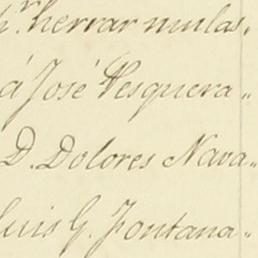 pr. herrar mulas.
á José Pesquera "
D. Dolores Nava "
Luis G. Fontana "